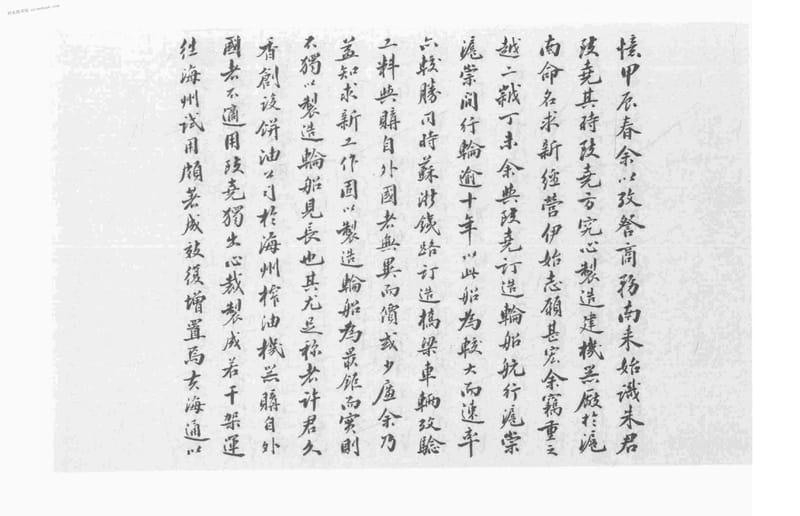 憶甲辰春余以考察商務南来始識朱君
志堯其時志堯方究心製造建機器廠於滬
南命名求新經營伊始志願甚宏余竊重之
越二歲丁未余與志堯訂造輪船航行滬崇
滬崇間行輪逾十年以此船為較大而速率
亦較勝同時蘇浙鐵路訂造橋梁車輛攷驗
工料與購自外國者無異而價或少廉余乃
益知求新工作固以製造輪船為最鉅而實則
不獨以製造輪船見長也其尤足称者許君久
香創設餅油公司於海州榨油機器購自外
國者不適用志堯獨出心裁製成若干架運
往海州試用頗著成效復增置焉友海通以